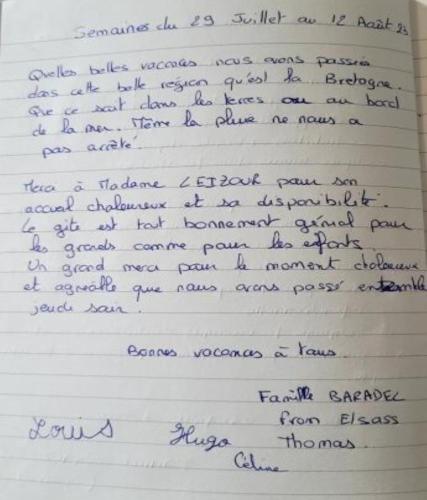 Semaines du 29 Juillet au 12 Août 23
Quelles belles vacances nous avons passées
dans cette belle région qu'est la Bretagne.
Que ce soit dans les terres ou au bord
de la mer. Même la pluie ne nous a
pas arrêté.
Merci à Madame LEIZOUR pour son
accueil chaleureux et sa disponibilité.
Le gîte est tout bonnement génial pour
les grands comme pour les enfants.
Un grand merci pour le moment chaleureux
et agréable que nous avons passé ensemble
jeudi soir.
Bonnes vacances à tous.
Famille BARADEL
from Elsass
Louis Hugo Thomas.
Céline